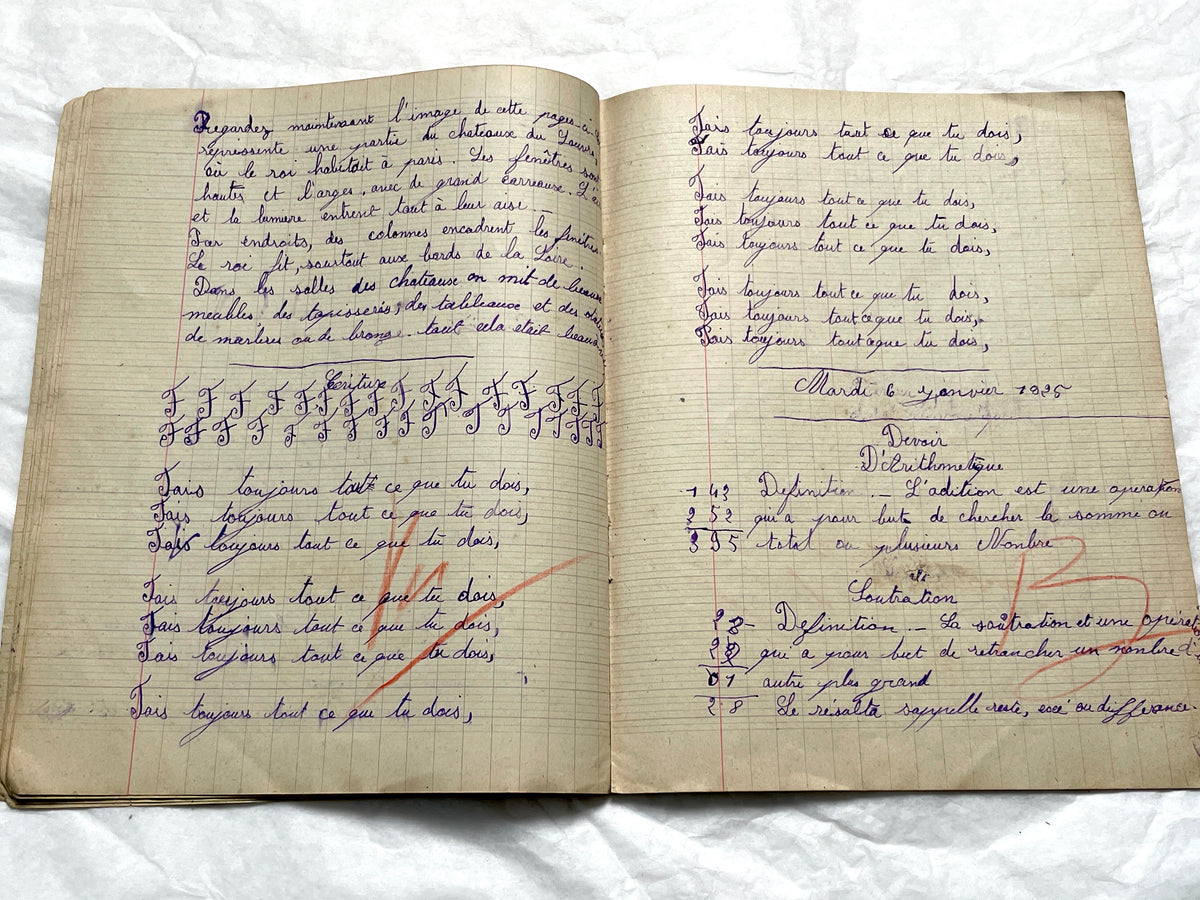 Regardez maintenant l'image de cette pages-ci. Elle
represente une partie du chateaux du Louvre,
où le roi habitait à paris. Les fenêtres sont
hautes et l'arges, avec de grand carreaux. L'air
et la lumiere entrent tout à leur aise. _
Par endroits, des colonnes encadrent les fenêtres.
Le roi fit, surtout aux bords de la Loire.
Dans les salles des chateaux on mit de beaux
meubles des tapisseries, des tableaux et des
de marbres ou de bronze. tout cela était beau
Ecriture
F F F F F F F F F F F F F F F F F
F F F F F F F F F F F F F F F F F
Fais toujours tout ce que tu dois,
Fais toujours tout ce que tu dois,
Fais toujours tout ce que tu dois,
Vu
Fais toujours tout ce que tu dois,
Fais toujours tout ce que tu dois,
Fais toujours tout ce que tu dois,
Fais toujours tout ce que tu dois,
Fais toujours tout ce que tu dois,
Fais toujours tout ce que tu dois,
Fais toujours tout ce que tu dois,
Fais toujours tout ce que tu dois,
Fais toujours tout ce que tu dois,
Fais toujours tout ce que tu dois,
Fais toujours tout ce que tu dois,
Fais toujours tout ce que tu dois,
Mardi 6 janvier 1925
Devoir
D'Arithmetique
143 Definition. _ L'adition est une operation
252 qui a pour but de chercher la somme ou
395 total ou plusieurs Nombre
B
Soutration
28 - Definition. _ La soutration et une opérat
qui a pour but de retrancher un nombre d'
01 autre plus grand
28 Le resalta sappelle reste, excé ou difference.